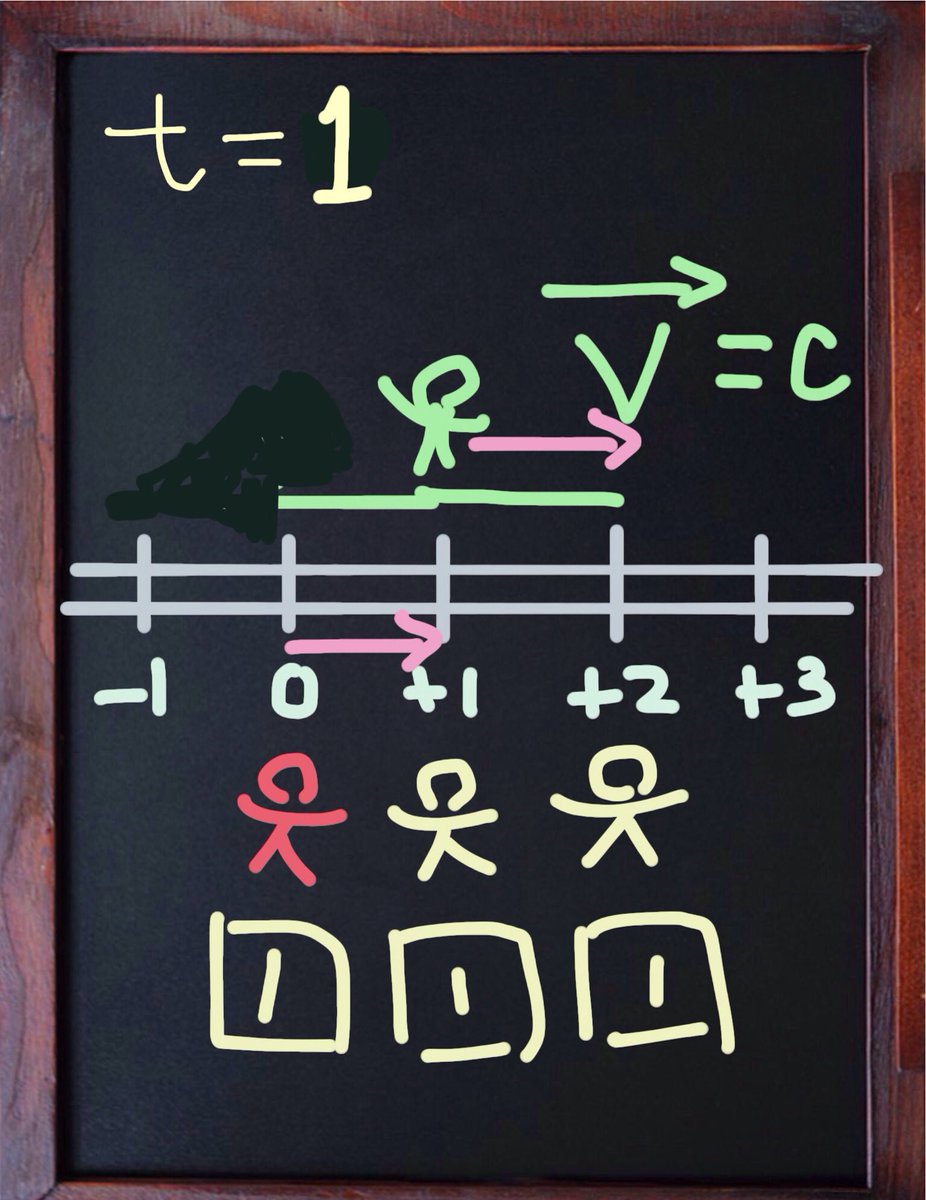 t = 1
V = c
-1 0 +1 +2 +3
1 1 1